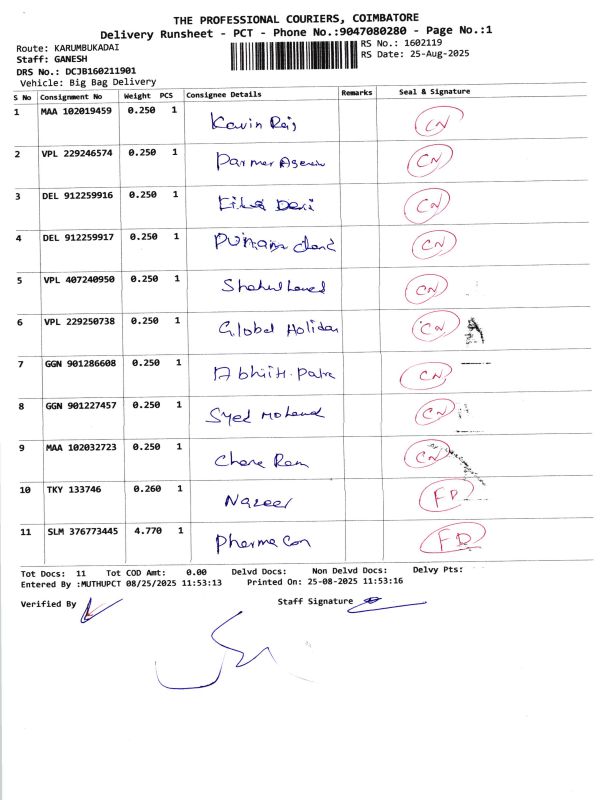 THE PROFESSIONAL COURIERS, COIMBATORE
Delivery Runsheet - PCT - Phone No.:9047080280 - Page No.:1
Route: KARUMBUKADAI
RS No.: 1602119
Staff: GANESH
RS Date: 25-Aug-2025
DRS No.: DCJB160211901
Vehicle: Big Bag Delivery
S No Consignment No Weight PCS Consignee Details Remarks Seal & Signature
1 MAA 102019459 0.250 1 Kavin Raj CN
2 VPL 229246574 0.250 1 Parmar CN
3 DEL 912259916 0.250 1 Devi CN
4 DEL 912259917 0.250 1 CN
5 VPL 407240950 0.250 1 CN
6 VPL 229250738 0.250 1 Global Holiday CN
7 GGN 901286608 0.250 1 CN
8 GGN 901227457 0.250 1 Syed Mohamed CN
9 MAA 102032723 0.250 1 Ram CN
10 TKY 133746 0.260 1 Nazeer FD
11 SLM 376773445 4.770 1 Pharma Con FD
Tot Docs: 11 Tot COD Amt: 0.00 Delvd Docs: Non Delvd Docs: Delvy Pts:
Entered By :MUTHUPCT 08/25/2025 11:53:13 Printed On: 25-08-2025 11:53:16
Verified By Staff Signature